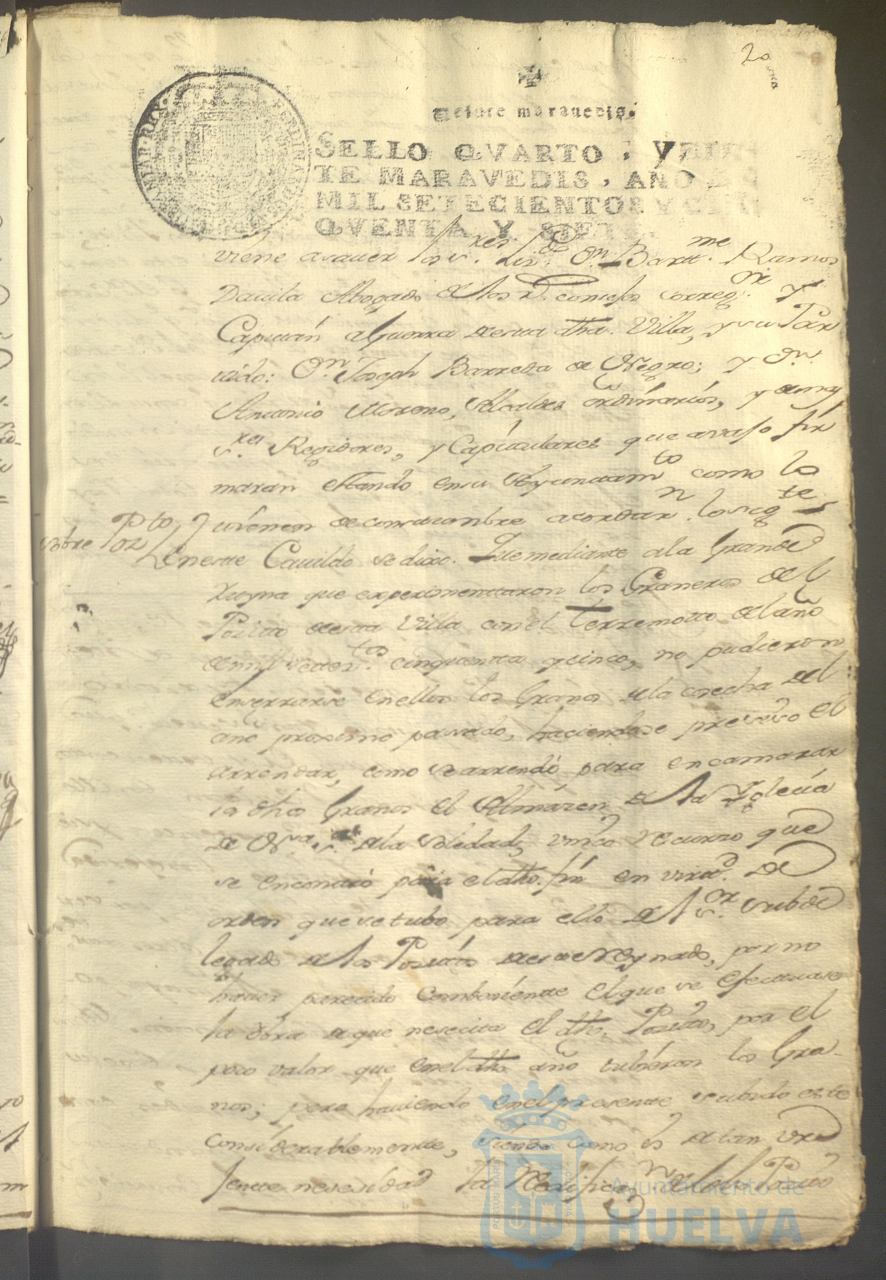 20
Veinte maravedis.
SELLO QVARTO, VEIN
TE MARAVEDIS, AÑO DE
MIL SETECIENTOS Y CIN
QVENTA Y SIETE.
viene a saver los s.res Liz.do D.n Barttme Ramos
Davila Abogado de los R.s consejos correg.or y
Capitán a Guerra de esta dha. Villa, y su Par
tido: D.n Joseph Barreda de Negro; y D.n
Antonio Moreno, Alcaldes ordinarios, y demas
s.res Regidores, y Capitulares que avajo fir
maran estando en su Ayuntam.to como lo
tienen de costumbre acordar.n lo sig.te
sobre Pto
En este Cavildo se dixo. Que mediante a la Grande
Ruyna que experimentaron los Graneros del
Posito de esta Villa con el Terremotto del año
de mill setez.tos cinquenta y cinco, no pudieron
enzerrarse en ellos los Granos de la cosecha del
año proximo pasado, haciendose preciso el
arrendar, como se arrendó para encamarar
los dhos Granos el Almazen de la Yglecia
de Nra. S.ra de la Soledad, unico recurso que
se encontró para el dho. fin en virtd. de
orden que se tubo para ello del S.or Subde
legado de los Positos de este Reynado, por no
haver parecido combeniente el que se efectuase
la obra de que nesecita el dho. Posito, por el
poco valor que en el dho año tubieron los Gra-
nos; pero haviendo en el presente subido este
considerablemente, siendo como es de tan ur
jente nesesidad la Redificn. del dho Posito
Ayuntamiento de
HUELVA